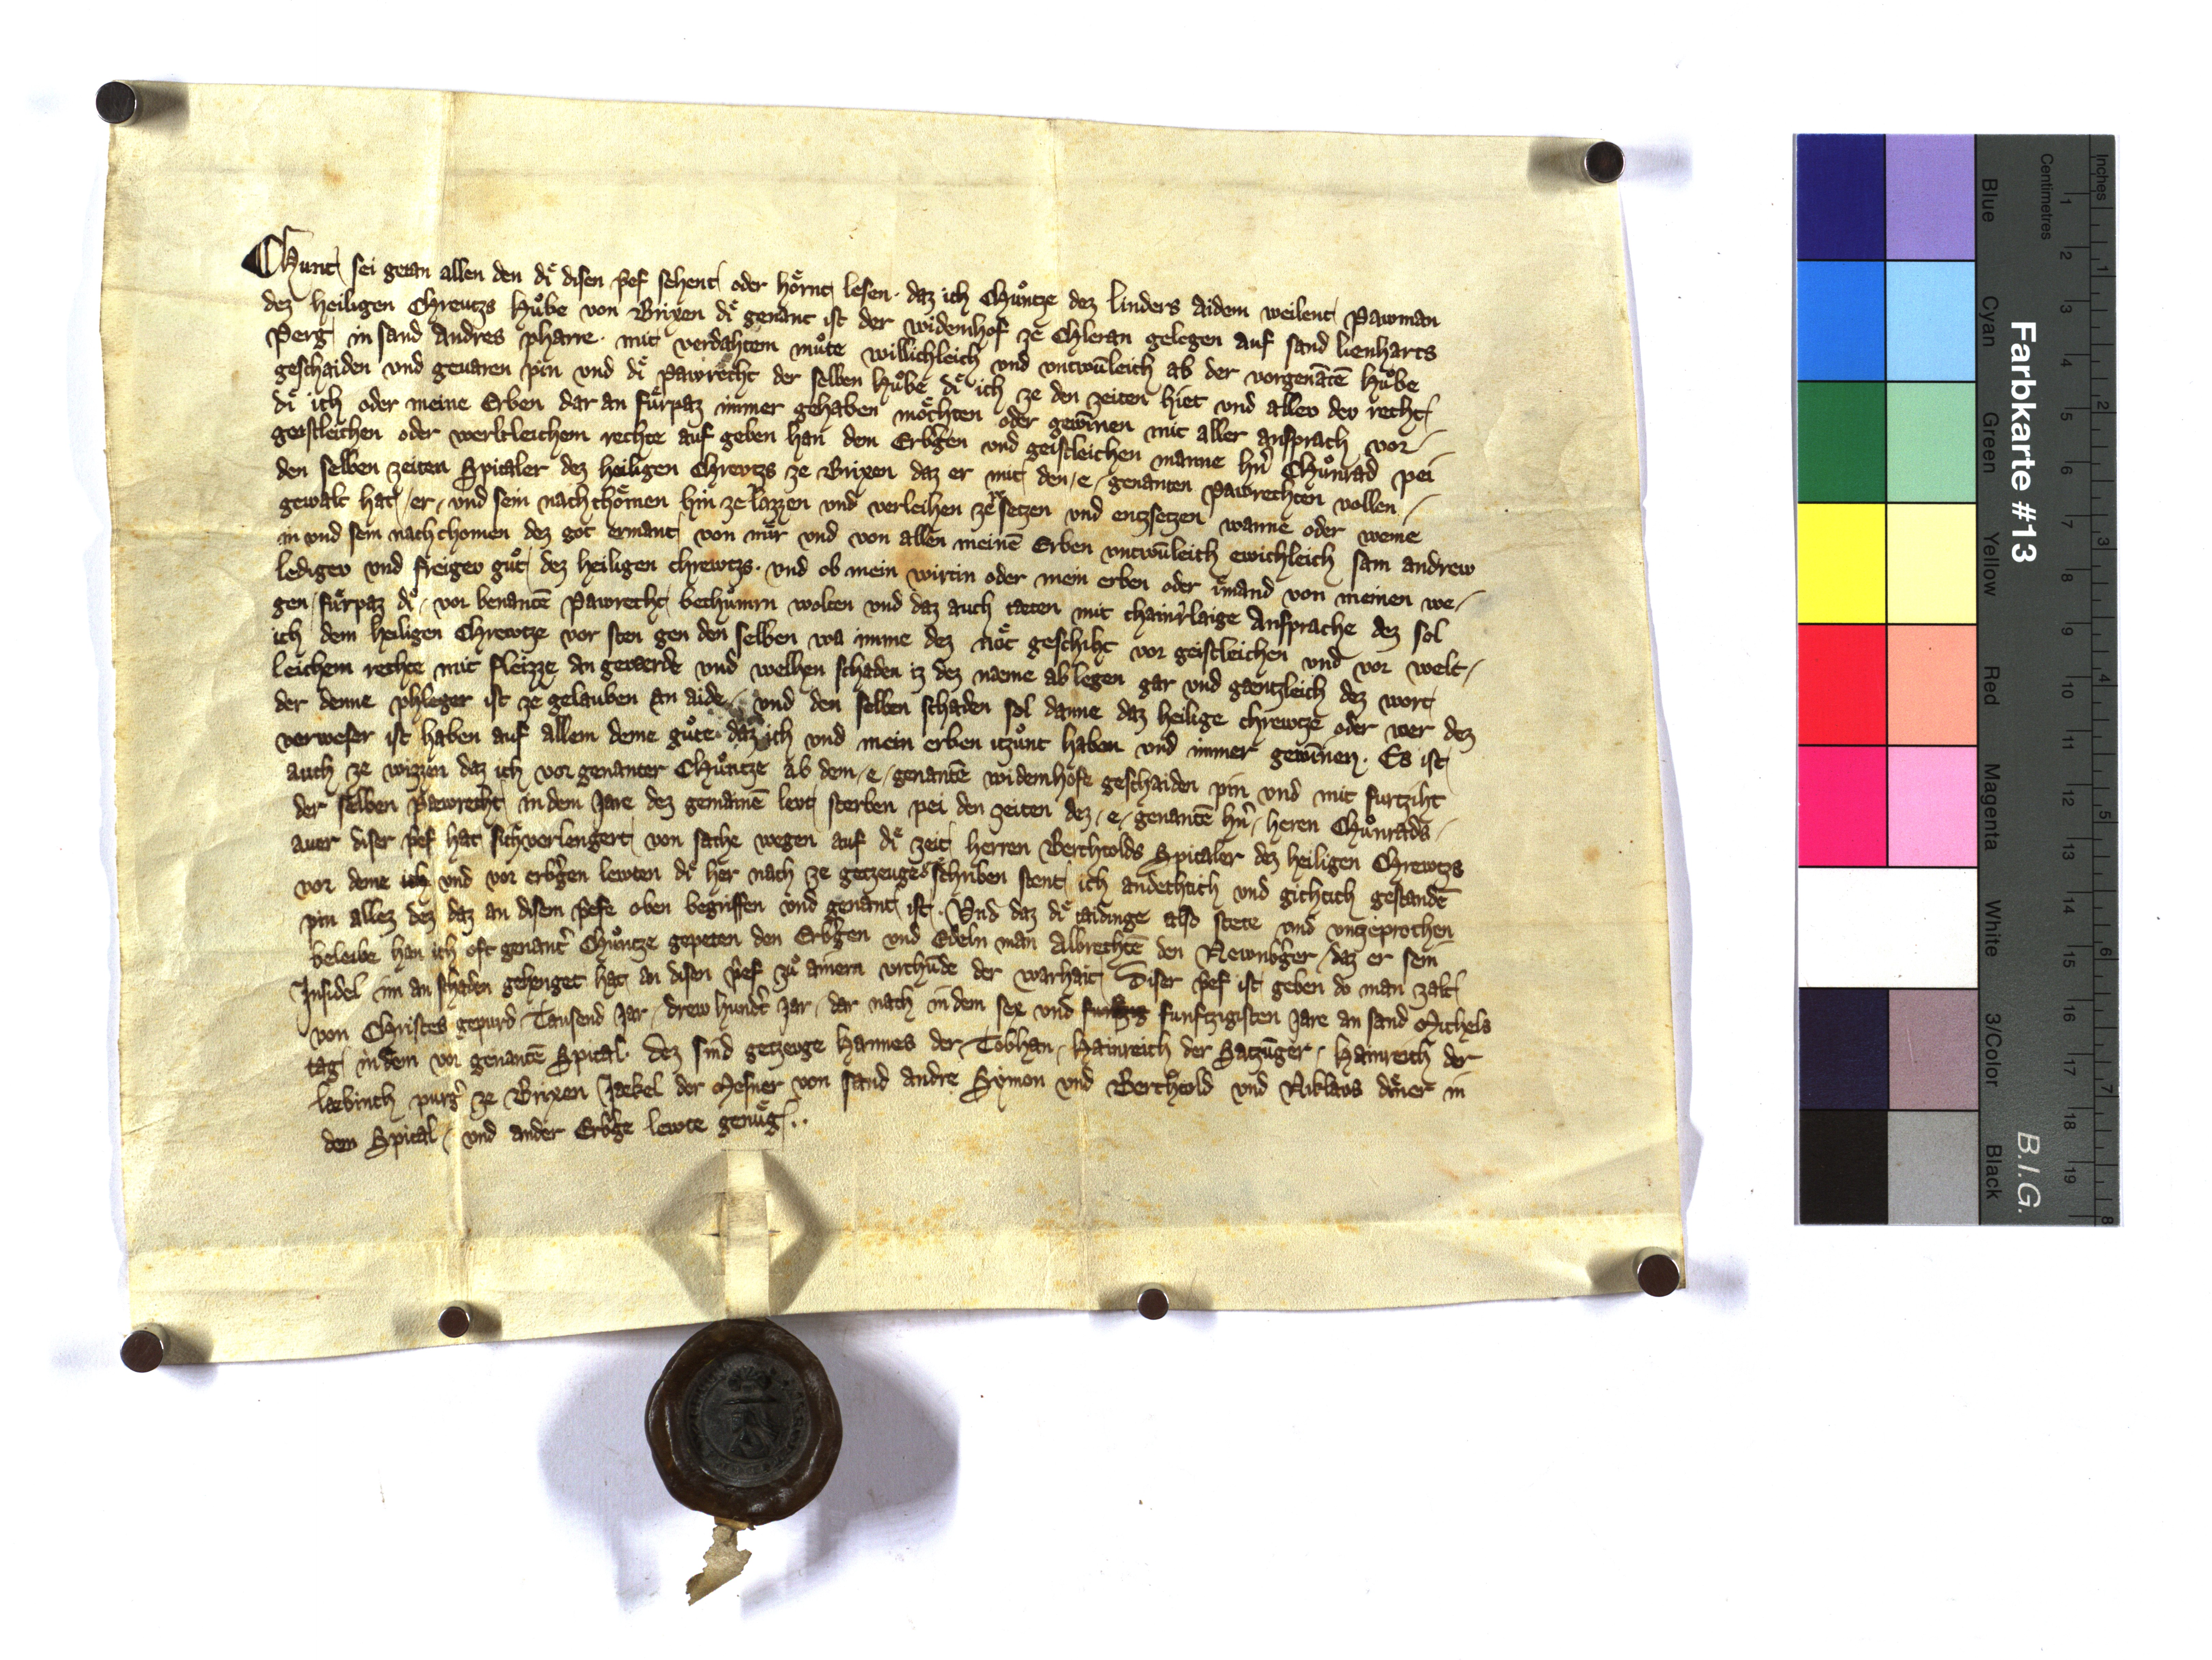 Chunt sei getan allen den dı̊ disen p̄ef sehent oder hörnt lesen. daz ich Chůntze dez linders aidem weilent Pawman
dez heiligen Chreutzs Hůbe von Brixen dı̊ genant ist der widemhof ze Chleran gelegen auf sand lienharts
Perg in sand Andres pharre. mit verdahtem můte willichleich vnd vntwu̅leich ab der vorgena̅te̅ Hůbe
geschaiden vnd geuaren pin vnd dı̊ Pawrecht der selben Hůbe dı̊ ich ze den zeiten hiet vnd allev dev recht
dı̊ ich oder meine Erben dar an fu̇rpaz immer gehaben möchten oder gewi̅nen mit aller ansprach vor
geistleichen oder werltleichem rechte auf geben han dem Erbgen vnd geistleichen manne hn̄ Chůnrad pei
den selben zeiten Spitaler dez heiligen Chrevtzs ze Brixen daz er mit den e genanten pawrechten vollen
gewalt hat er vnd sein nachchömen hin ze lazzen vnd verleihen ze setzen vnd entzsetzen wanne oder weme
in vnd sem nachchomen dez got ermant von mir vnd von allen meine̅ Erben vntwu̅leich ewichleich sam andrew
ledigev vnd freigev gůt dez heiligen chrewtzs. vnd ob mein wirtin oder mein erben oder ı̊mand von meinen we
gen fůrpaz dı̊ vor benante̅ Pawrecht bechůmrn wolten vnd daz auch tæten mit chainr̄laige Ansprache dez sol
ich dem heiligen Chrewtze vor sten gen den selben wa imme dez nöt geschiht vor geistleichen vnd vor welt
leichem rechte mit fleizze an gewerde vnd welhen schaden iz dez næme ablegen gar vnd gæntzleich dez wort
der denne phleger ist ze gelauben an aide. vnd den selben schaden sol danne daz heilige chrewtze oder wer dez
verweser ist haben auf allem deme gůte daz ich vnd mein erben itzůnt haben vnd immer gewi̅nen. Es ist
auch ze wizzen daz ich vor genanter Chůntze ab dem e genante̅ widemhofe geschaiden pin vnd mit furtziht
der selben Pawrecht in dem Jare dez gemaine̅ levt sterben pei den zeiten dez e genante̅ hn̄ heren Chůnrads
aver diser p̄ef hat sich verlengert von sache wegen auf dı̊ zeit herren Berchtolds Spitaler dez heiligen Chrewtzs
vor deme ich vnd vor erbgen lewten dı̊ her nach ze getzeuge schriben stent ich andechtich vnd gichtich gestande̅
pin allez dez daz an disem p̄efe oben begriffen vnd genant ist. Vnd daz dı̊ taidinge also stete vnd vnzeprochen
beleibe han ich oft genant̄ Chůntze gepeten den Erbgen vnd Edeln man Albrechte̅ den Newnbger daz er sein
Insidel im an schaden gehenget hat an disen p̄ef zů ainem vrchu̅de der warhait Diser p̄ef ist geben do man zalt
von Christes gepurd Tausend Jar drew hundt̄ Jar dar nach in dem sex vnd funftzigisten Jare an sand Michels
tag in dem vor genante̅ Spital. dez sind getzeuge Hannes der Tobhan Hainreich der Satzu̅ger Hainreich der
læbinch purg̅ ze Brixen Jækel der Mesner von sand andre Symon vnd Berchtold vnd Niklavs diner in
dem Spital vnd ander Erbge lewte genůg..
Farbkarte #13
B.I.G.
Inches
1 2 3 4 5 6 7 8
Centimetres
1 2 3 4 5 6 7 8 9 10 11 12 13 14 15 16 17 18 19
Blue
Cyan
Green
Yellow
Red
Magenta
White
3/Color
Black